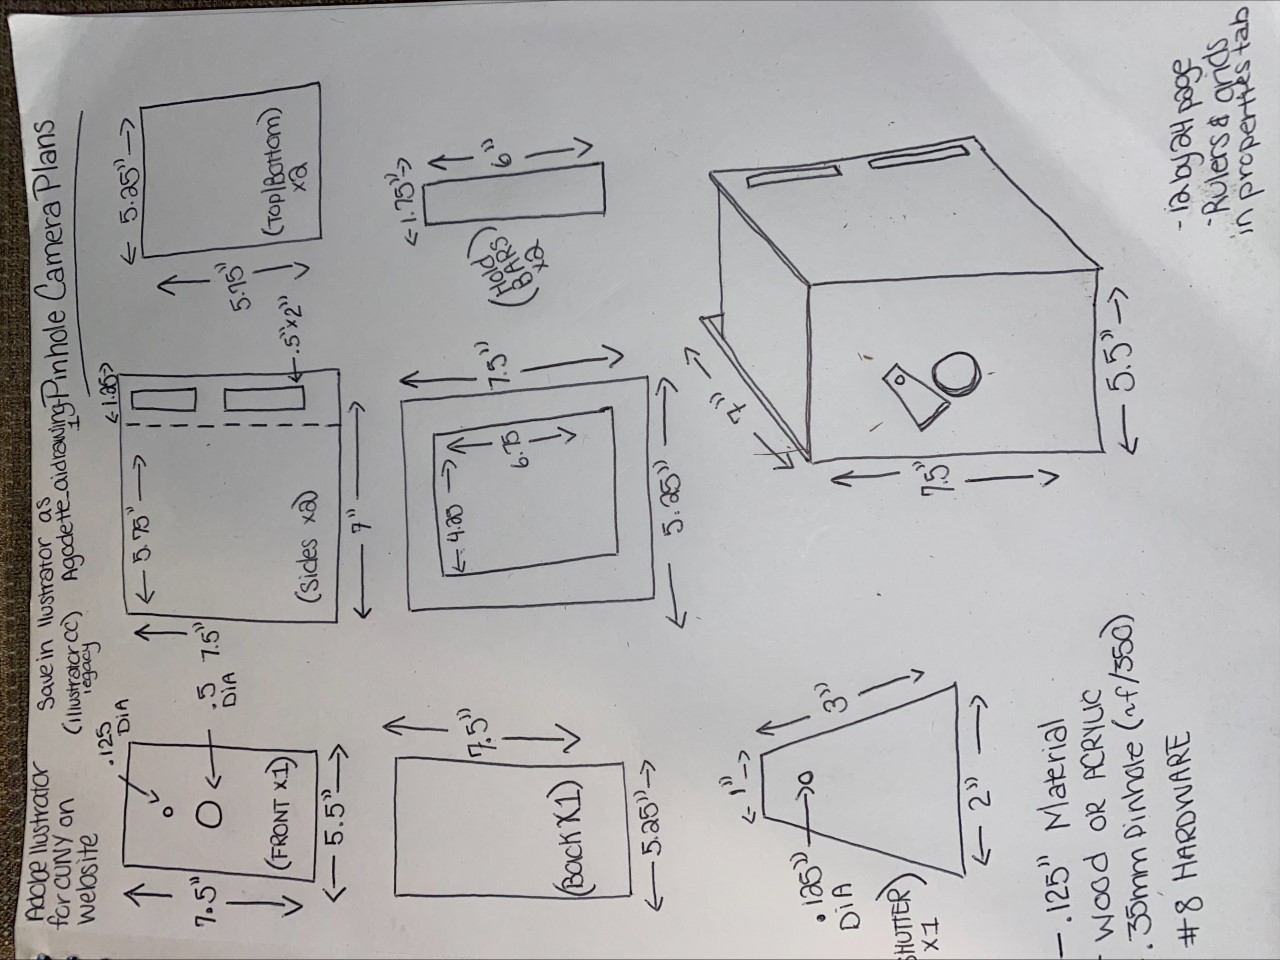 Adobe Illustrator
for CUNY on
website
Save in Illustrator as
(Illustrator CC)
legacy
Agodette_aidrawing-Pinhole Camera Plans
.125
DIA
.5
DIA
7.5"
(FRONT x1)
← 5.5" →
7.5"
← 5.75" →
←1.25→
.5"x2"
(Sides x2)
← 7" →
← 5.25" →
5.75"
(Top/Bottom)
x2
7.5"
(Back x1)
← 5.25" →
7.5"
← 4.25 →
6.75
← 5.25" →
←1.75"→
6"
(Hold)
BARS
x2
←1"→
3"
.125"
DIA
← 2" →
SHUTTER)
x1
7"
7.5"
← 5.5" →
- .125" Material
- WOOD OR ACRYLIC
. 35mm Pinhole (~f/350)
#8 HARDWARE
- 12 by 24 page
- Rulers & grids
in properties tab